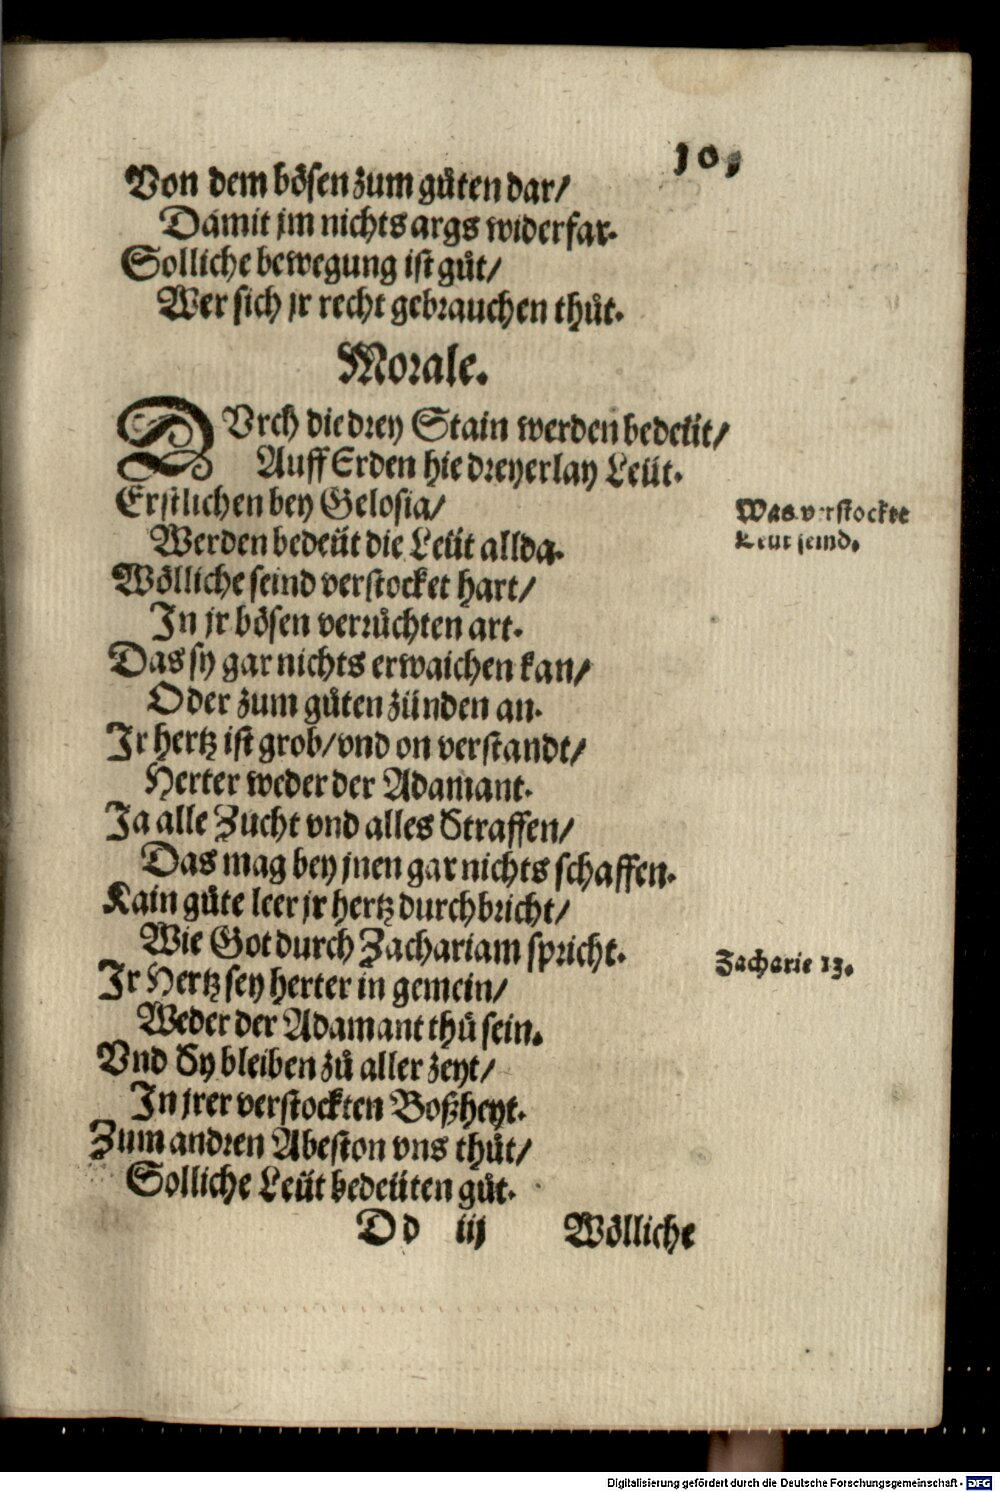 10,
Von dem bösen zum guͤten dar/
Damit jm nichts args widerfar.
Solliche bewegung ist guͤt/
Wer sich jr recht gebrauchen thuͤt.
Morale.
DVrch die drey Stain werden bedeüt/
Auff Erden hie dreyerlay Leüt.
Erstlichen bey Gelosia/
Werden bedeüt die Leüt allda.
Wölliche seind verstocket hart/
In jr bösen verruͤchten art.
Das sy gar nichts erwaichen kan/
Oder zum guͤten zünden an.
Ir hertz ist grob/ vnd on verstandt/
Herter weder der Adamant.
Ja alle Zucht vnd alles Straffen/
Das mag bey jnen gar nichts schaffen.
Kain guͤte leer jr hertz durchbricht/
Wie Got durch Zachariam spricht.
Ir Hertz sey herter in gemein/
Weder der Adamant thuͤ sein.
Vnd Sy bleiben zuͤ aller zeyt/
In jrer verstockten Boßheyt.
Zum andren Abeston vns thuͤt/
Solliche Leüt bedeüten guͤt.
Dd iij Wölliche
Was verstockte
Leut seind.
Zacharie 13.
Digitalisierung gefördert durch die Deutsche Forschungsgemeinschaft - DFG